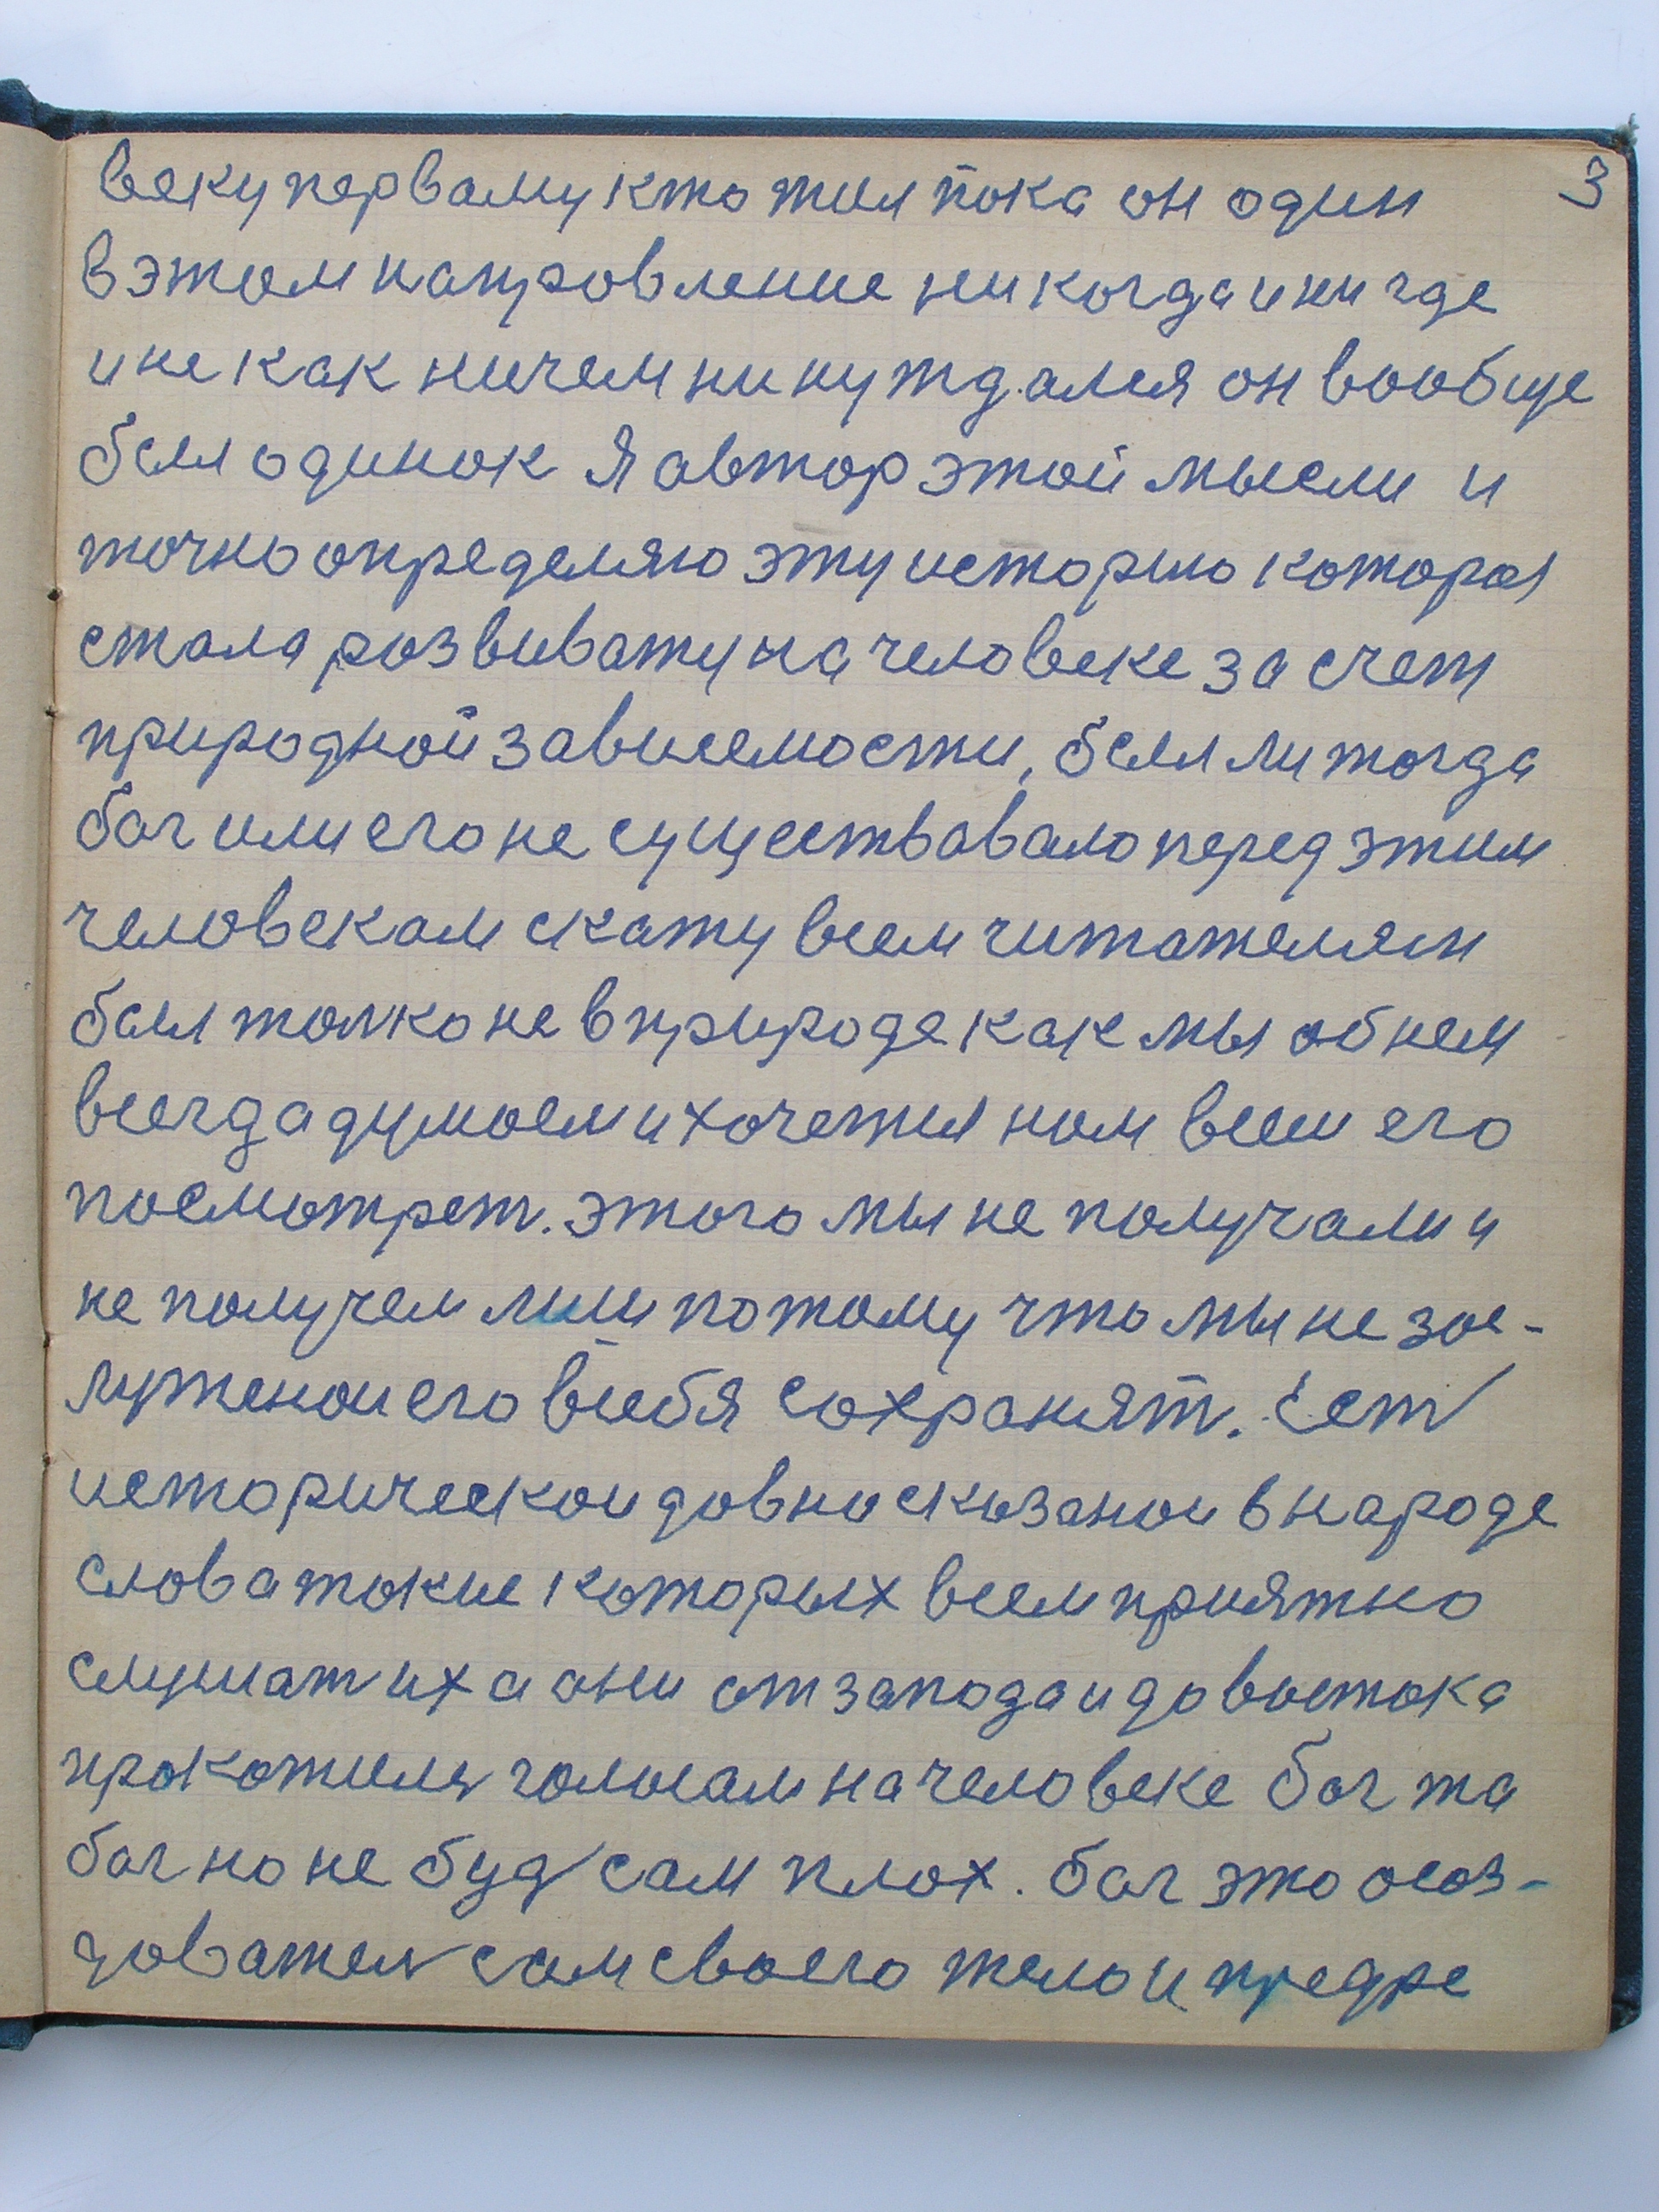 веку перваму кто жил пока он один 3
в этом напровление ни когда и ни где
и не как ничем ни нуждался он вообще
бил одинок Я автор этой мысли и
точно определяю эту историю которая
стала розвивату на человеке за счет
природной зависемости, бил ли тогда
бог или его не существавало перед этим
человекам скажу всем читателям
бил толко не в природе как мы об нем
всегда думоем и хочется ном всем его
посмотрет. этого мы не получали и
не получем лиш потому что мы не зос-
луженои его в себя сохранят. Ест
историческои довно сказанои в народе
слова токие которых всем приятно
слушат их а они от запода и до востока
прокотиль голосам на человеке бог та
бог но не будь сам плох. бог это осоз-
дователь сам своего тело и предре